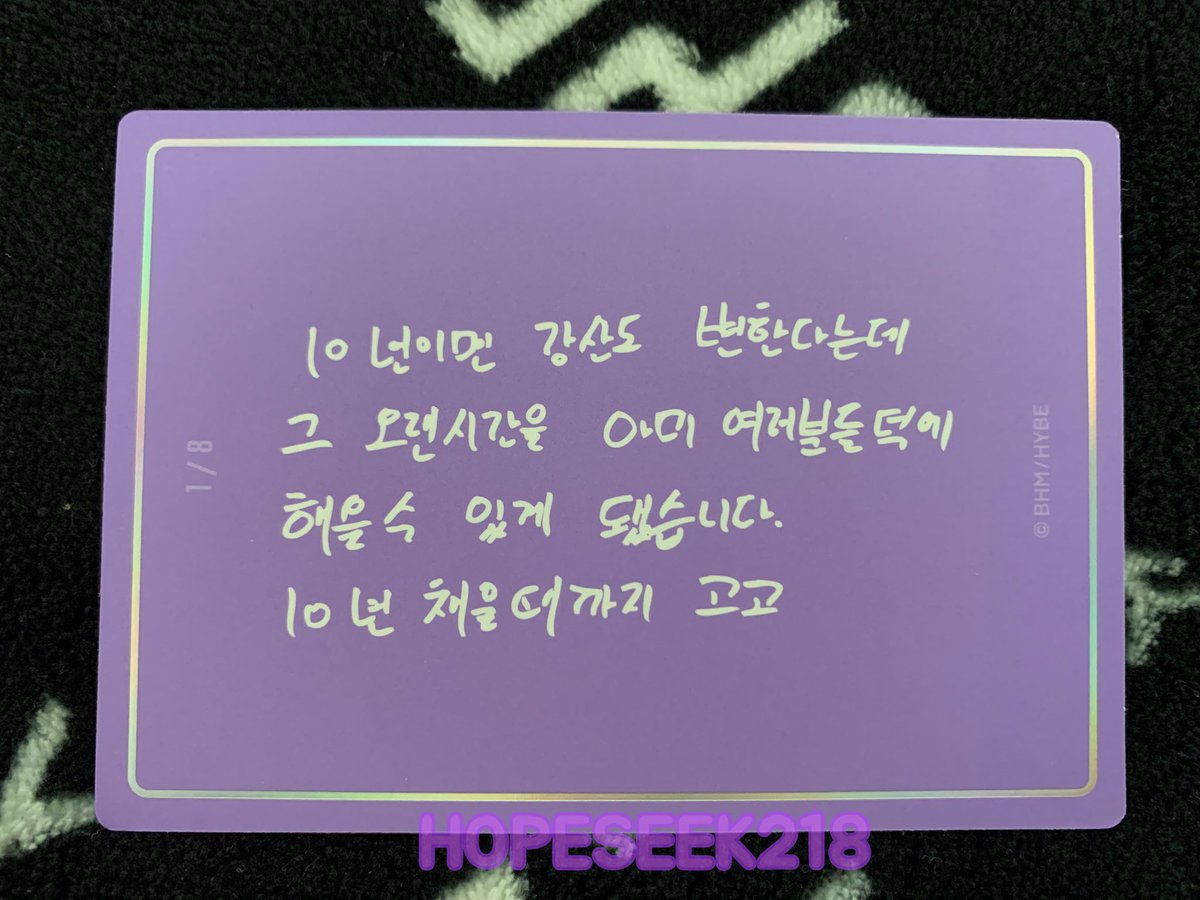 10년이면 강산도 변한다는데
그 오랜시간을 아미 여러분들덕에
해올수 있게 됐습니다.
10년 채울때까지 고고
1/8
© BHM/HYBE
HOPESEEK218